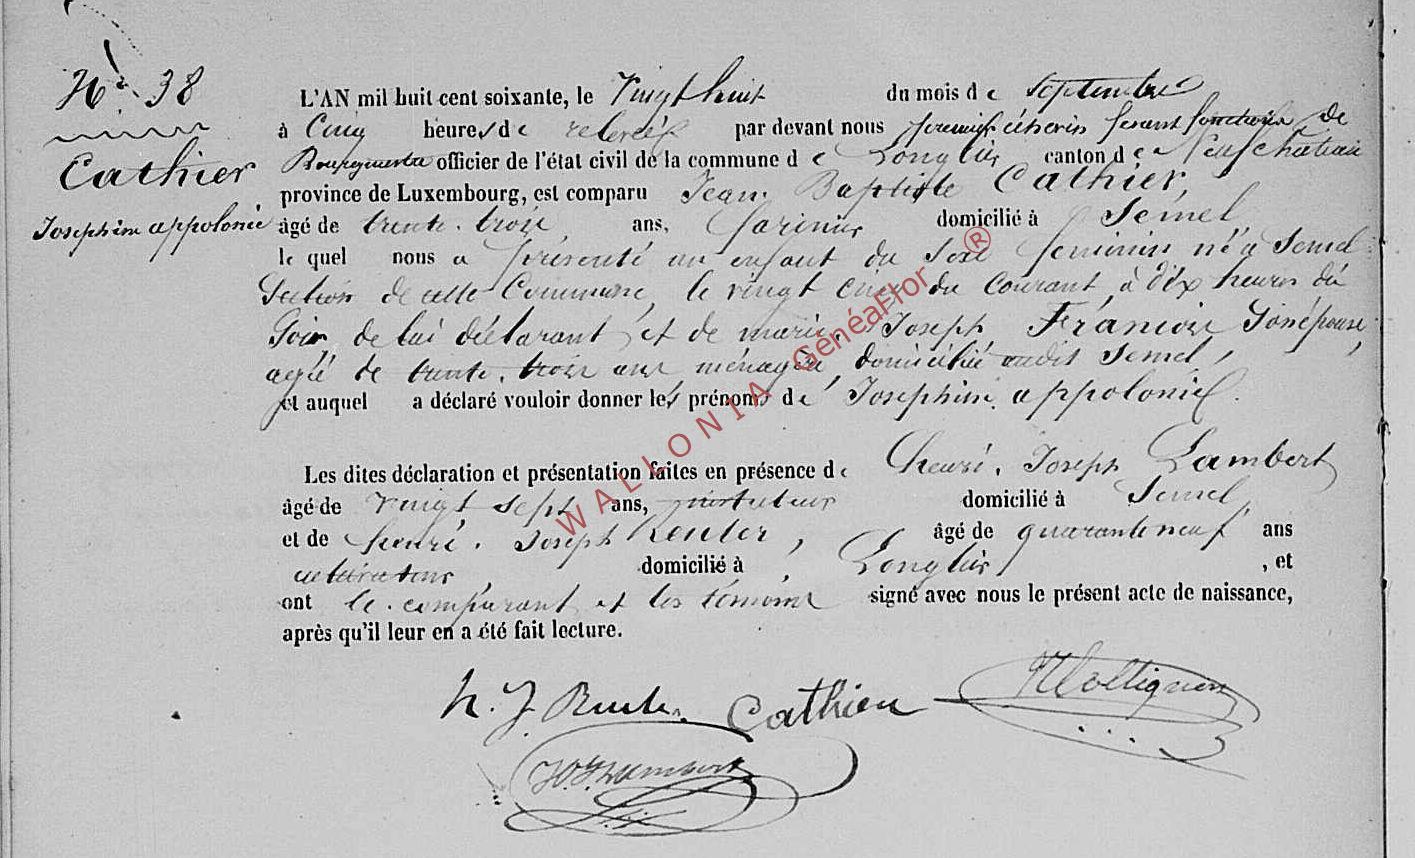 N° 38
Cathier
Josephine appolonie
L'AN mil huit cent soixante, le Vingt huit du mois de septembre
à Cinq heures de relevée par devant nous premier échevin ferant fonctions de
Bourgmestre officier de l'état civil de la commune de Longlier canton de Neufchateau
province de Luxembourg, est comparu Jean Baptiste Cathier,
âgé de trente-trois ans, domicilié à Semel
le quel nous a présenté un enfant du Sexe feminin né a Semel
Section de cette Commune, le vingt du courant, à dix heures du
Soir de lui déclarant et de marie. Joseph Francois Son épouse,
agée de trente. trois ans ménagère, domiciliée audit Semel,
et auquel a déclaré vouloir donner les prénoms de Josephine. appolonie.
Les dites déclaration et présentation faites en présence de henri. Joseph Lambert
âgé de vingt sept ans, instituteur domicilié à Semel,
et de henri. Joseph Reuter, âgé de quarante neuf ans
cultivateur, domicilié à Longlier, et
ont le comparant et les témoins signé avec nous le présent acte de naissance,
après qu'il leur en a été fait lecture.
H. J. Reuter. Cathier
H. J. Lambert
WALLONIA GénéaFlor ®